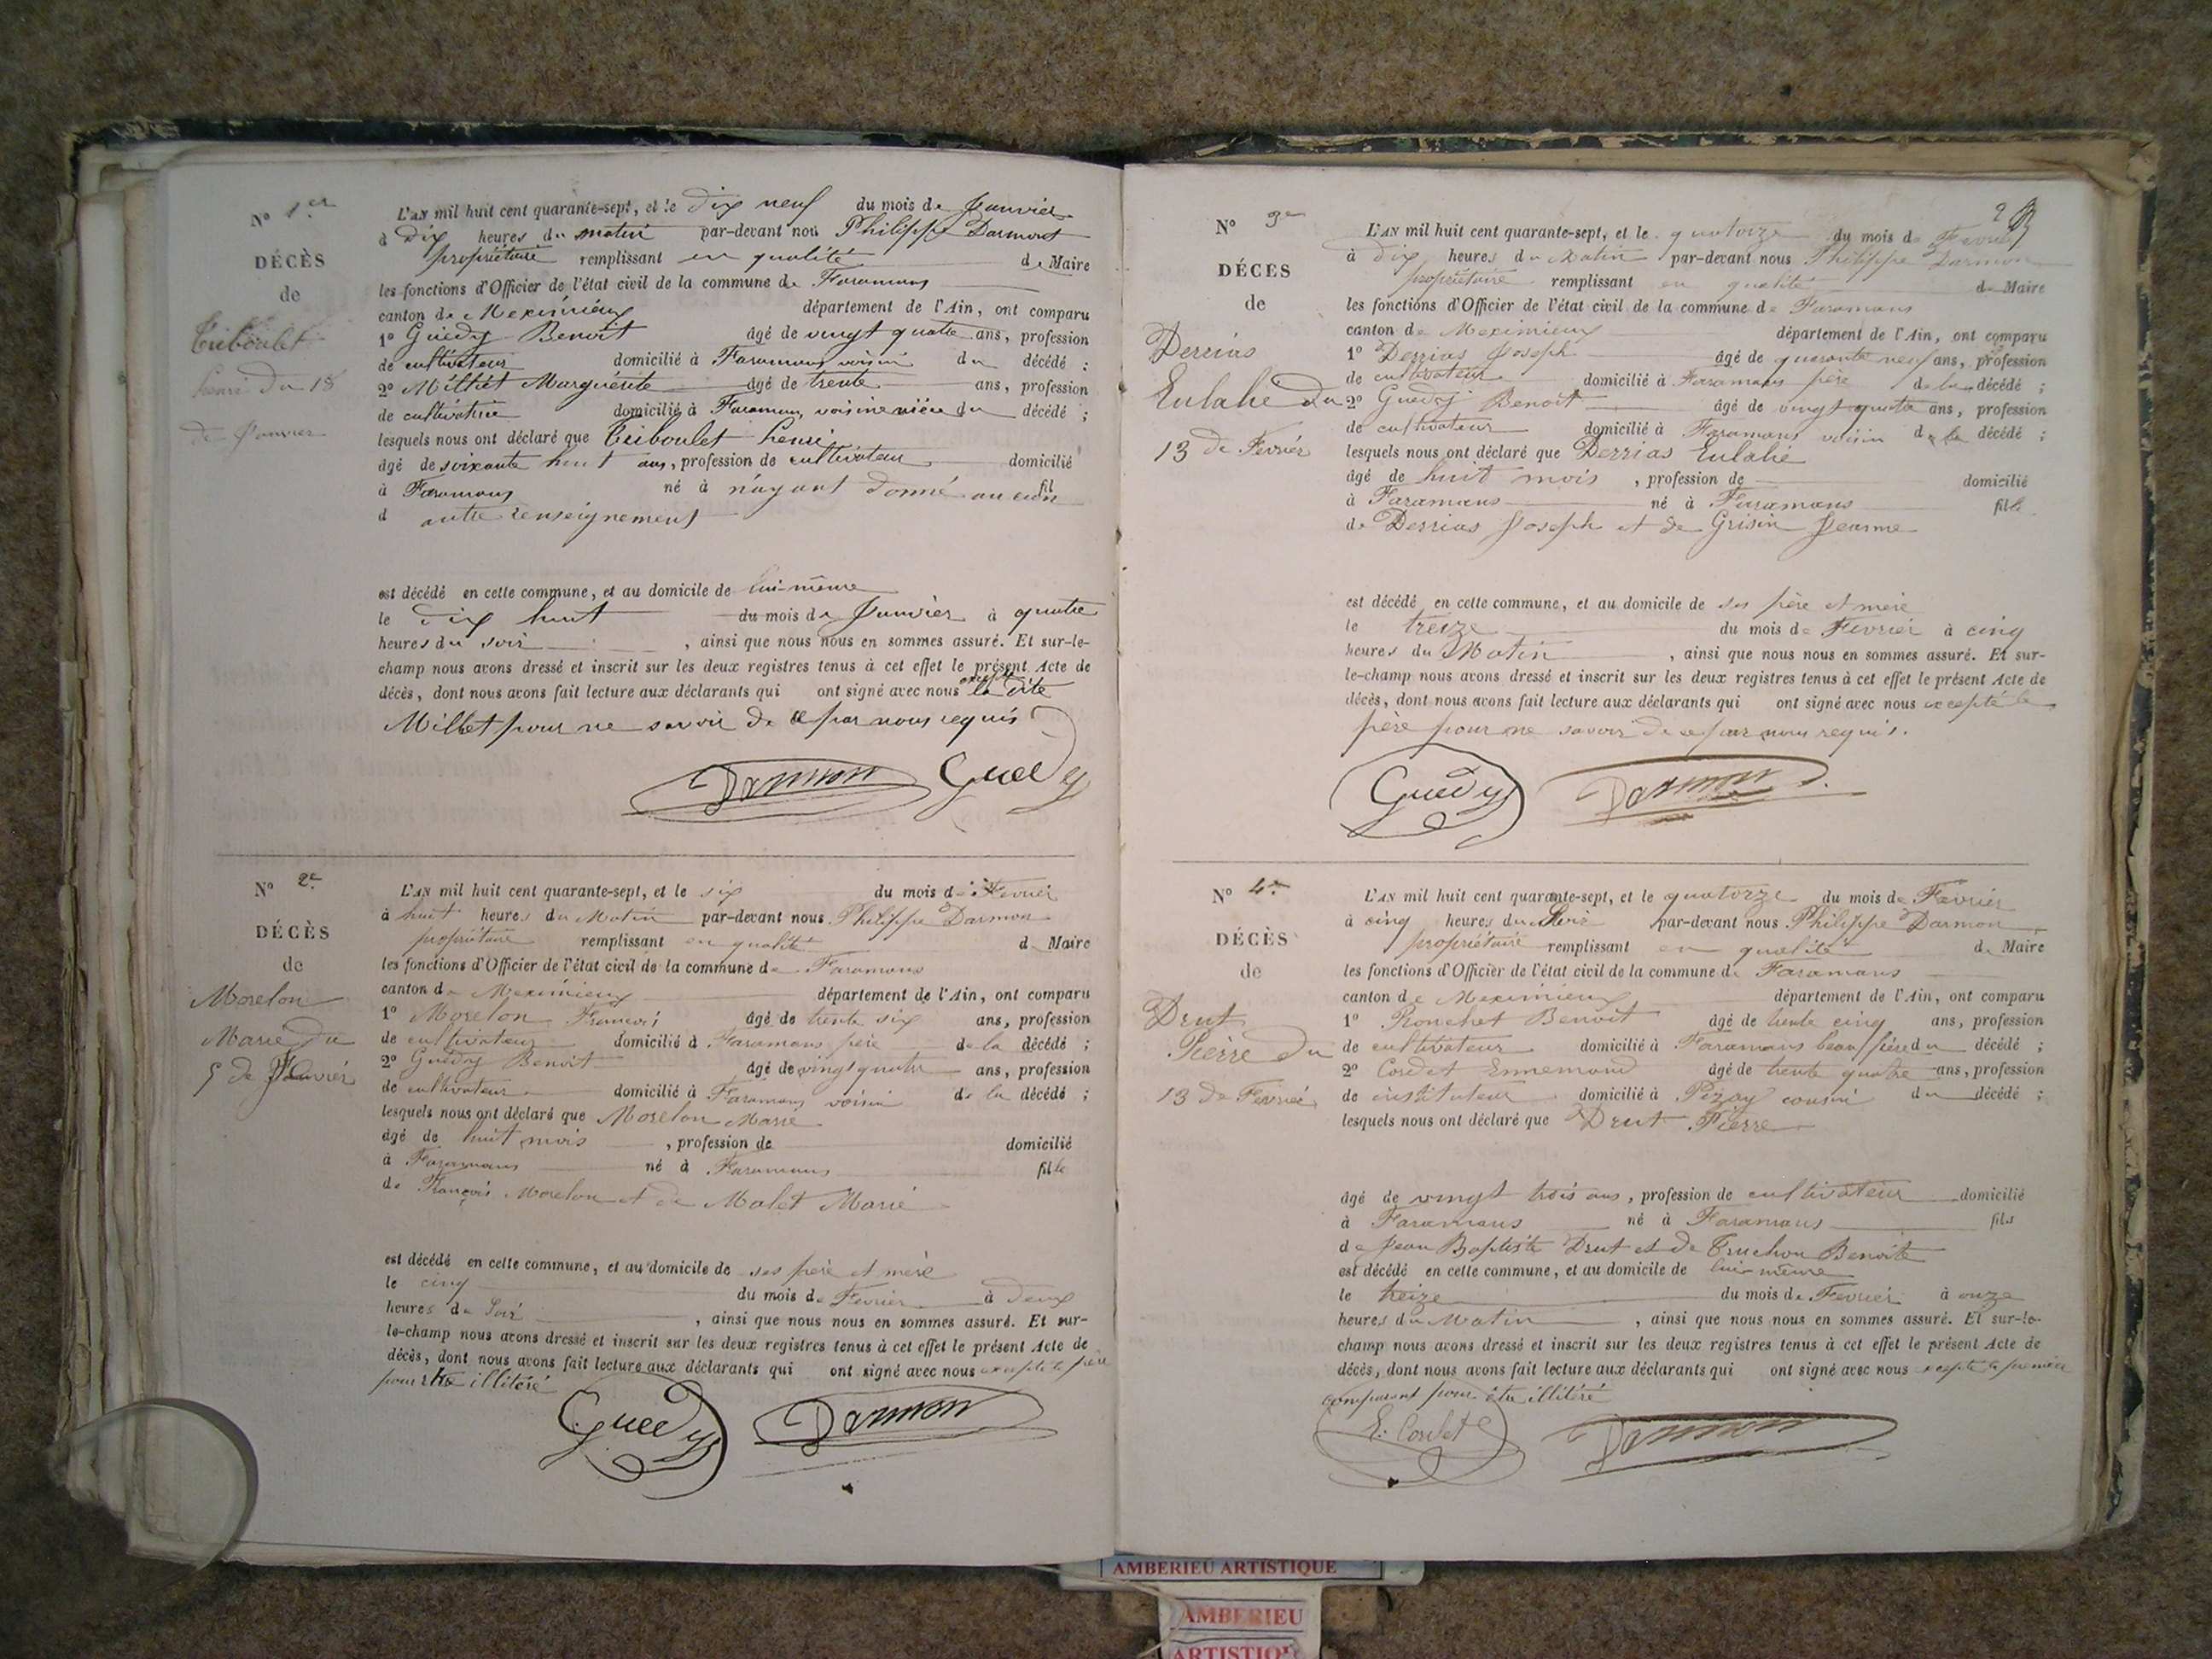 N° 1er
DÉCÈS
de
Triboulet
henri du 18
de Janvier
L'AN mil huit cent quarante-sept, et le dix neuf du mois de Janvier
à dix heures du matin par-devant nous Philippe Darmont
propriétaire remplissant en qualité de Maire
les fonctions d'Officier de l'état civil de la commune de Faramans
canton de Meximieux département de l'Ain, ont comparu
1° Guédy Benoit âgé de vingt quatre ans, profession
de cultivateur domicilié à Faramans voisin du décédé ;
2° Milliet Marguerite âgé de trente ans, profession
de cultivatrice domicilié à Faramans voisine du décédé ;
lesquels nous ont déclaré que Triboulet henri
âgé de soixante huit ans, profession de cultivateur domicilié
à Faramans né à n'ayant donné aucun fil
d autre renseignement
est décédé en cette commune, et au domicile de lui-même
le dix huit du mois de Janvier à quatre
heures du soir , ainsi que nous nous en sommes assuré. Et sur-le-
champ nous avons dressé et inscrit sur les deux registres tenus à cet effet le présent Acte de
décès, dont nous avons fait lecture aux déclarants qui ont signé avec nous excepté la dite
Milliet pour ne savoir de ce par nous requis
Darmon Guedy
N° 2e
DÉCÈS
de
Morelon
Marie du
5 de Février
L'AN mil huit cent quarante-sept, et le six du mois de Fevrier
à huit heures du Matin par-devant nous Philippe Darmon
propriétaire remplissant en qualité de Maire
les fonctions d'Officier de l'état civil de la commune de Faramans
canton de Meximieux département de l'Ain, ont comparu
1° Morelon Francois âgé de trente six ans, profession
de cultivateur domicilié à Faramans père de la décédé ;
2° Guedy Benoit âgé de vingt quatre ans, profession
de cultivateur domicilié à Faramans voisin de la décédé ;
lesquels nous ont déclaré que Morelon Marie
âgé de huit mois , profession de domicilié
à Faramans né à Faramans fille
de François Morelon et de Malet Marie
est décédé en cette commune, et au domicile de ses père et mère
le cinq du mois de Fevrier à deux
heures du Soir , ainsi que nous nous en sommes assuré. Et sur-
le-champ nous avons dressé et inscrit sur les deux registres tenus à cet effet le présent Acte de
décès, dont nous avons fait lecture aux déclarants qui ont signé avec nous excepté le père
pour être illitéré
Guedy Darmon
2
N° 3e
DÉCÈS
de
Derrias
Eulalie du
13 de Fevrier
L'AN mil huit cent quarante-sept, et le quatorze du mois de Fevrier
à dix heures du Matin par-devant nous Philippe Darmon
propriétaire remplissant en qualité de Maire
les fonctions d'Officier de l'état civil de la commune de Faramans
canton de Meximieux département de l'Ain, ont comparu
1° Derrias Joseph âgé de quarante neuf ans, profession
de cultivateur domicilié à Faramans père de la décédé ;
2° Guedy Benoit âgé de vingt quatre ans, profession
de cultivateur domicilié à Faramans voisin de la décédé ;
lesquels nous ont déclaré que Derrias Eulalie
âgé de huit mois , profession de domicilié
à Faramans né à Faramans fille
de Derrias Joseph et de Grisin Jeanne
est décédé en cette commune, et au domicile de ses père et mère
le treize du mois de Fevrier à cinq
heures du Matin , ainsi que nous nous en sommes assuré. Et sur-
le-champ nous avons dressé et inscrit sur les deux registres tenus à cet effet le présent Acte de
décès, dont nous avons fait lecture aux déclarants qui ont signé avec nous excepté le
père pour ne savoir de ce par nous requis.
Guedy Darmon
N° 4e
DÉCÈS
de
Drut
Pierre du
13 de Fevrier
L'AN mil huit cent quarante-sept, et le quatorze du mois de Fevrier
à cinq heures du Soir par-devant nous Philippe Darmon
propriétaire remplissant en qualité de Maire
les fonctions d'Officier de l'état civil de la commune de Faramans
canton de Meximieux département de l'Ain, ont comparu
1° Ronchet Benoit âgé de trente cinq ans, profession
de cultivateur domicilié à Faramans beau frère du décédé ;
2° Cordet Ennemond âgé de trente quatre ans, profession
de instituteur domicilié à Pizay cousin du décédé ;
lesquels nous ont déclaré que Drut Pierre
âgé de vingt trois ans , profession de cultivateur domicilié
à Faramans né à Faramans fils
de Jean Baptiste Drut et de Truchon Benoite
est décédé en cette commune, et au domicile de lui-même
le treize du mois de Fevrier à onze
heures du Matin , ainsi que nous nous en sommes assuré. Et sur-le-
champ nous avons dressé et inscrit sur les deux registres tenus à cet effet le présent Acte de
décès, dont nous avons fait lecture aux déclarants qui ont signé avec nous excepté le premier
comparant pour être illitéré
E. Cordet Darmon
AMBERIEU ARTISTIQUE
AMBERIEU
ARTISTIQUE